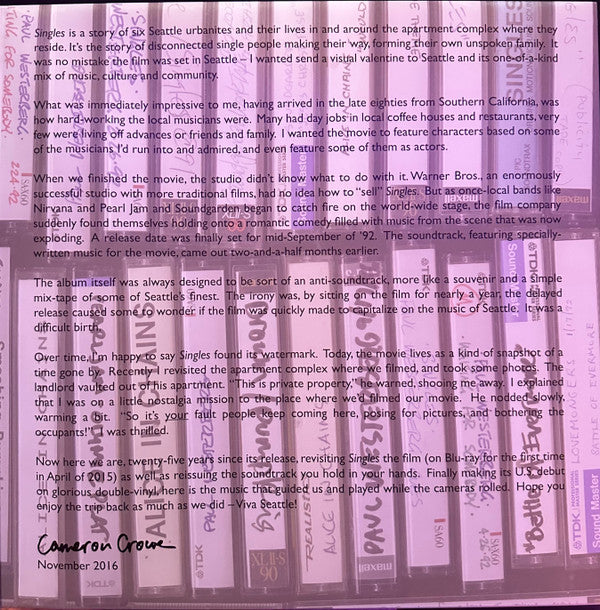 Singles is a story of six Seattle urbanites and their lives in and around the apartment complex where they
reside. It's the story of disconnected single people making their way, forming their own unspoken family. It
was no mistake the film was set in Seattle – I wanted send a visual valentine to Seattle and its one-of-a-kind
mix of music, culture and community.
What was immediately impressive to me, having arrived in the late eighties from Southern California, was
how hard-working the local musicians were. Many had day jobs in local coffee houses and restaurants, very
few were living off advances or friends and family. I wanted the movie to feature characters based on some
of the musicians I'd run into and admired, and even feature some of them as actors.
When we finished the movie, the studio didn't know what to do with it. Warner Bros., an enormously
successful studio with more traditional films, had no idea how to "sell" Singles. But as once-local bands like
Nirvana and Pearl Jam and Soundgarden began to catch fire on the world-wide stage, the film company
suddenly found themselves holding onto a romantic comedy filled with music from the scene that was now
exploding. A release date was finally set for mid-September of '92. The soundtrack, featuring specially-
written music for the movie, came out two-and-a-half months earlier.
The album itself was always designed to be sort of an anti-soundtrack, more like a souvenir and a simple
mix-tape of some of Seattle's finest. The irony was, by sitting on the film for nearly a year, the delayed
release caused some to wonder if the film was quickly made to capitalize on the music of Seattle. It was a
difficult birth.
Over time, I'm happy to say Singles found its watermark. Today, the movie lives as a kind of snapshot of a
time gone by. Recently I revisited the apartment complex where we filmed, and took some photos. The
landlord vaulted out of his apartment. "This is private property," he warned, shooing me away. I explained
that I was on a little nostalgia mission to the place where we'd filmed our movie. He nodded slowly,
warming a bit. "So it's your fault people keep coming here, posing for pictures, and bothering the
occupants!" I was thrilled.
Now here we are, twenty-five years since its release, revisiting Singles the film (on Blu-ray for the first time
in April of 2015) as well as reissuing the soundtrack you hold in your hands. Finally making its U.S. debut
on glorious double-vinyl, here is the music that guided us and played while the cameras rolled. Hope you
enjoy the trip back as much as we did – Viva Seattle!
Cameron Crowe
November 2016
PAUL WESTERBERG
SA60
2-24-92
SINGLES
ALICE IN CHAINS
PAUL WESTERBERG
"Battle of Evermore"
LOVEMONGERS
BATTLE OF EVERMORE
Sound Master
TDK
maxell
SA60
4-25-92